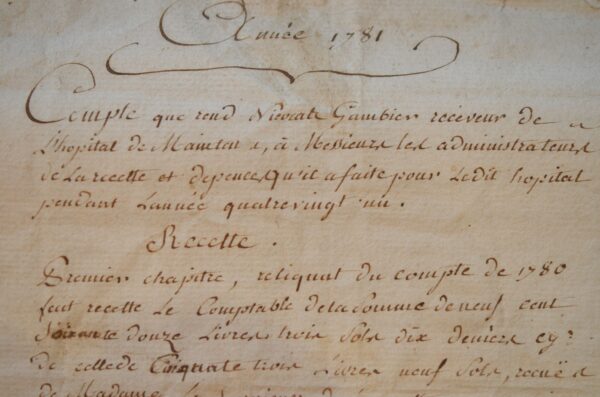 Année 1781
Compte que rend Nicocas Gambier receveur de
L'hopital de Maintau, à Messieurs les administrateurs
de La recette et depences qu'il a faite pour Ledit hopital
pendant L'année quatre vingt un.
Recette.
Premier chapitre, reliquat du compte de 1780
fait recette Le Comptable de la Somme de neuf cent
Soixante douze Livres trois Sols dix deniers cy
de celle de Cinquate trois Livres neuf Sols, recuë
de Madame